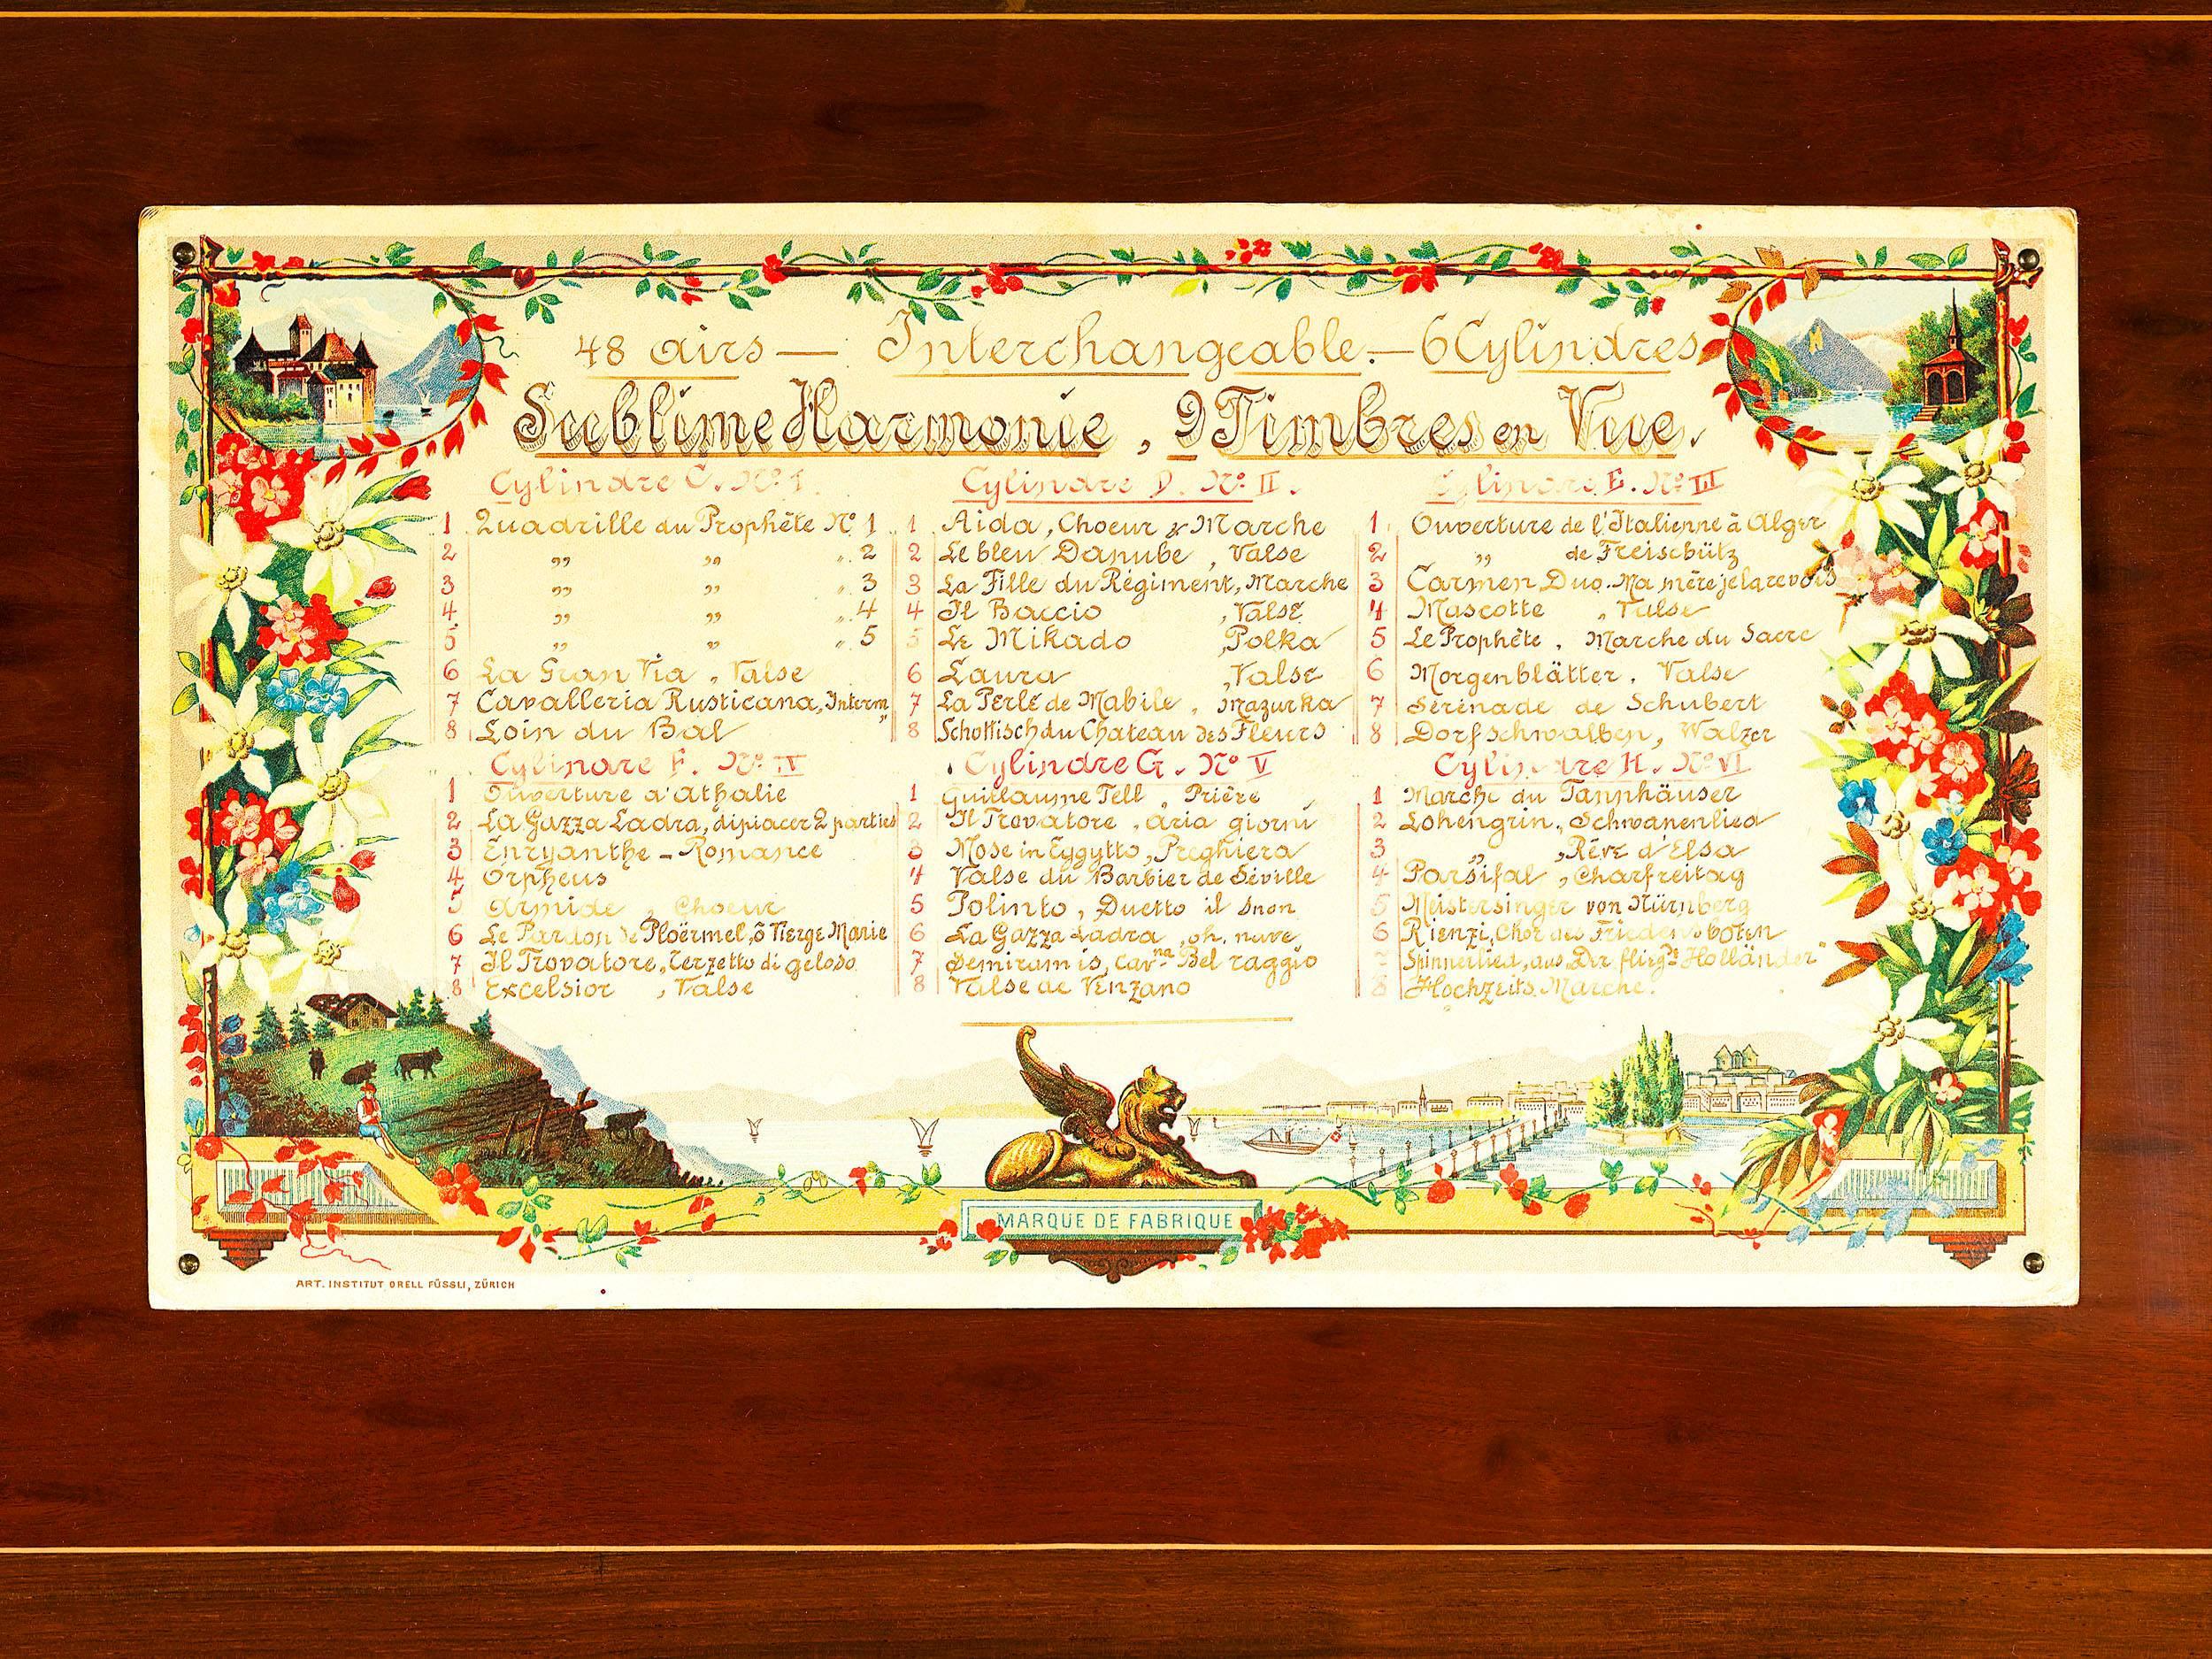 48 airs — Interchangeable. — 6 Cylindres
Sublime Harmonie, 9 Timbres en Vue.
Cylindre C. Nº 1.
1 Quadrille du Prophète Nº 1
2 „ „ „ 2
3 „ „ „ 3
4 „ „ „ 4
5 „ „ „ 5
6 La Gran Via, Valse
7 Cavalleria Rusticana, Interm
8 Loin du Bal „
Cylindre D. Nº II.
1 Aida, Choeur & Marche
2 Le bleu Danube, Valse
3 La Fille du Régiment, Marche
4 Il Baccio, Valse
5 Le Mikado, Polka
6 Laura, Valse
7 La Perle de Mabile, Mazurka
8 Schottisch du Chateau des Fleurs
Cylindre E. Nº III
1 Ouverture de l'Italienne à Alger
2 „ de Freischütz
3 Carmen Duo. Ma mère je la revois
4 Mascotte, Valse
5 Le Prophète, Marche du Sacre
6 Morgenblätter, Valse
7 Sérénade de Schubert
8 Dorfschwalben, Walzer
Cylindre F. Nº IV
1 Ouverture d'Athalie
2 La Gazza Ladra, di piacer 2 parties
3 Enryanthe - Romance
4 Orpheus
5 Armide, Choeur
6 Le Pardon de Ploërmel, ô Vierge Marie
7 Il Trovatore, Terzetto di geloso
8 Excelsior, Valse
Cylindre G. Nº V
1 Guillaume Tell, Prière
2 Il Trovatore, aria giorni
3 Mose in Egygtto, Preghiera
4 Valse du Barbier de Séville
5 Polinto, Duetto il Snon
6 La Gazza Ladra, oh, nuve
7 Semiramis, Cavna Bel raggio
8 Valse de Venzano
Cylindre H. Nº VI
1 Marche du Tannhäuser
2 Lohengrin, Schwanenlied
3 „ , Rêve d'Elsa
4 Parsifal, Charfreitag
5 Meistersinger von Nürnberg
6 Rienzi, Chor des Friedensboten
7 Spinnerlied, aus Der fliegde Holländer
8 Hochzeits Marche.
MARQUE DE FABRIQUE
ART. INSTITUT ORELL FÜSSLI, ZÜRICH